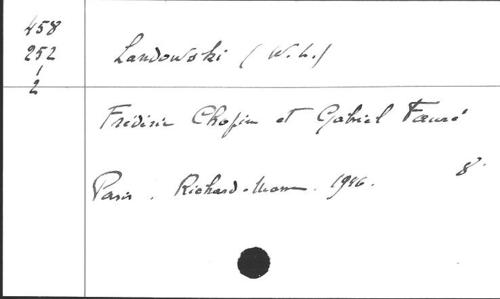 458
252
1
2
Landowski (W.L.)
Frédéric Chopin et Gabriel Fauré
Paris. Richard-Masse. 1946. 8°